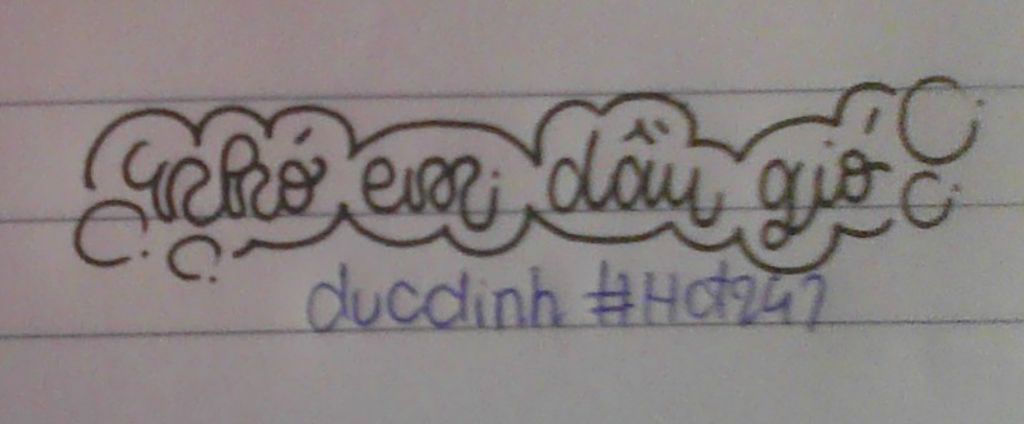 Nhớ em dầu giớ
ducdinh #Hot247